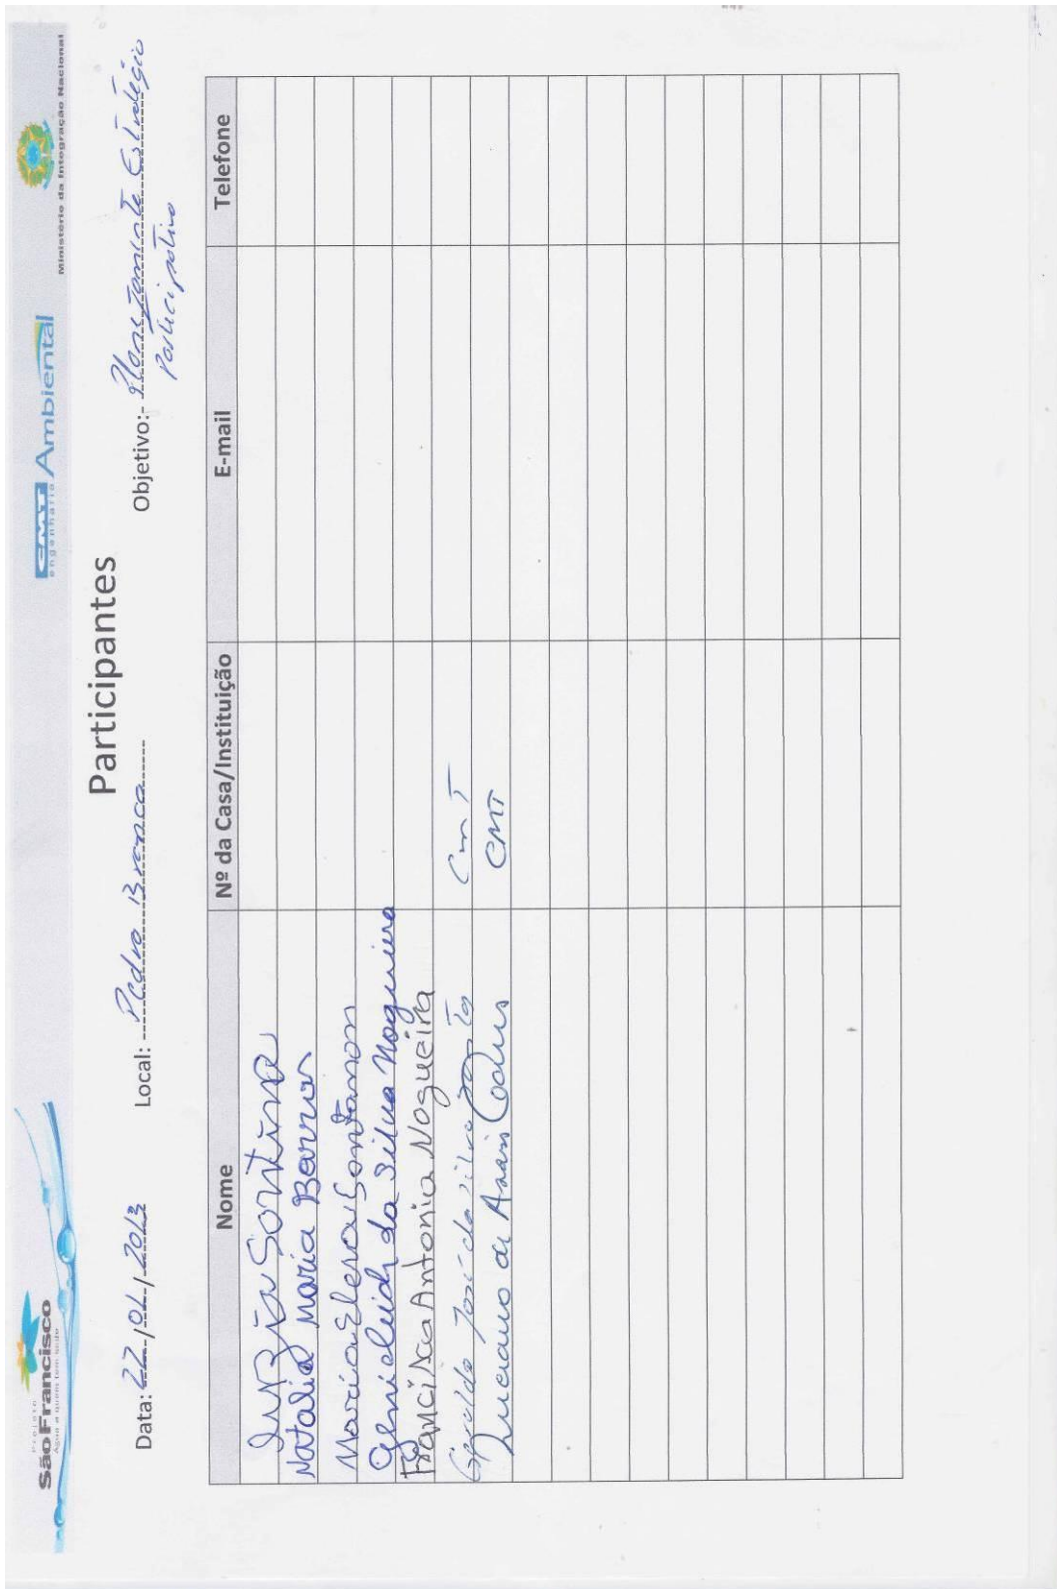 Projeto
São Francisco
Água a quem tem sede
CMT Ambiental
engenharia
Ministério da Integração Nacional
Participantes
Data: 22/01/2013 Local: Pedra Branca Objetivo: Planejamento Estratégio
Participativo
Nome Nº da Casa/Instituição E-mail Telefone
Luzia
Natalia Maria Barros
Maria Elena Santana
da Silva Nogueira
Francisca Antonia Nogueira
José da Silva CMT
Luciano de CMT